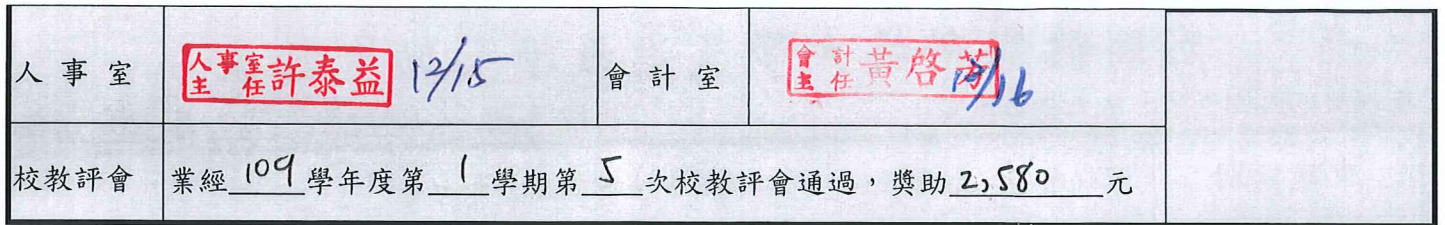 人事室 人事室主任許泰益 12/15 會計室 會計主任黃啓芳 12/16
校教評會 業經 109 學年度第 1 學期第 5 次校教評會通過，獎助 2,580 元